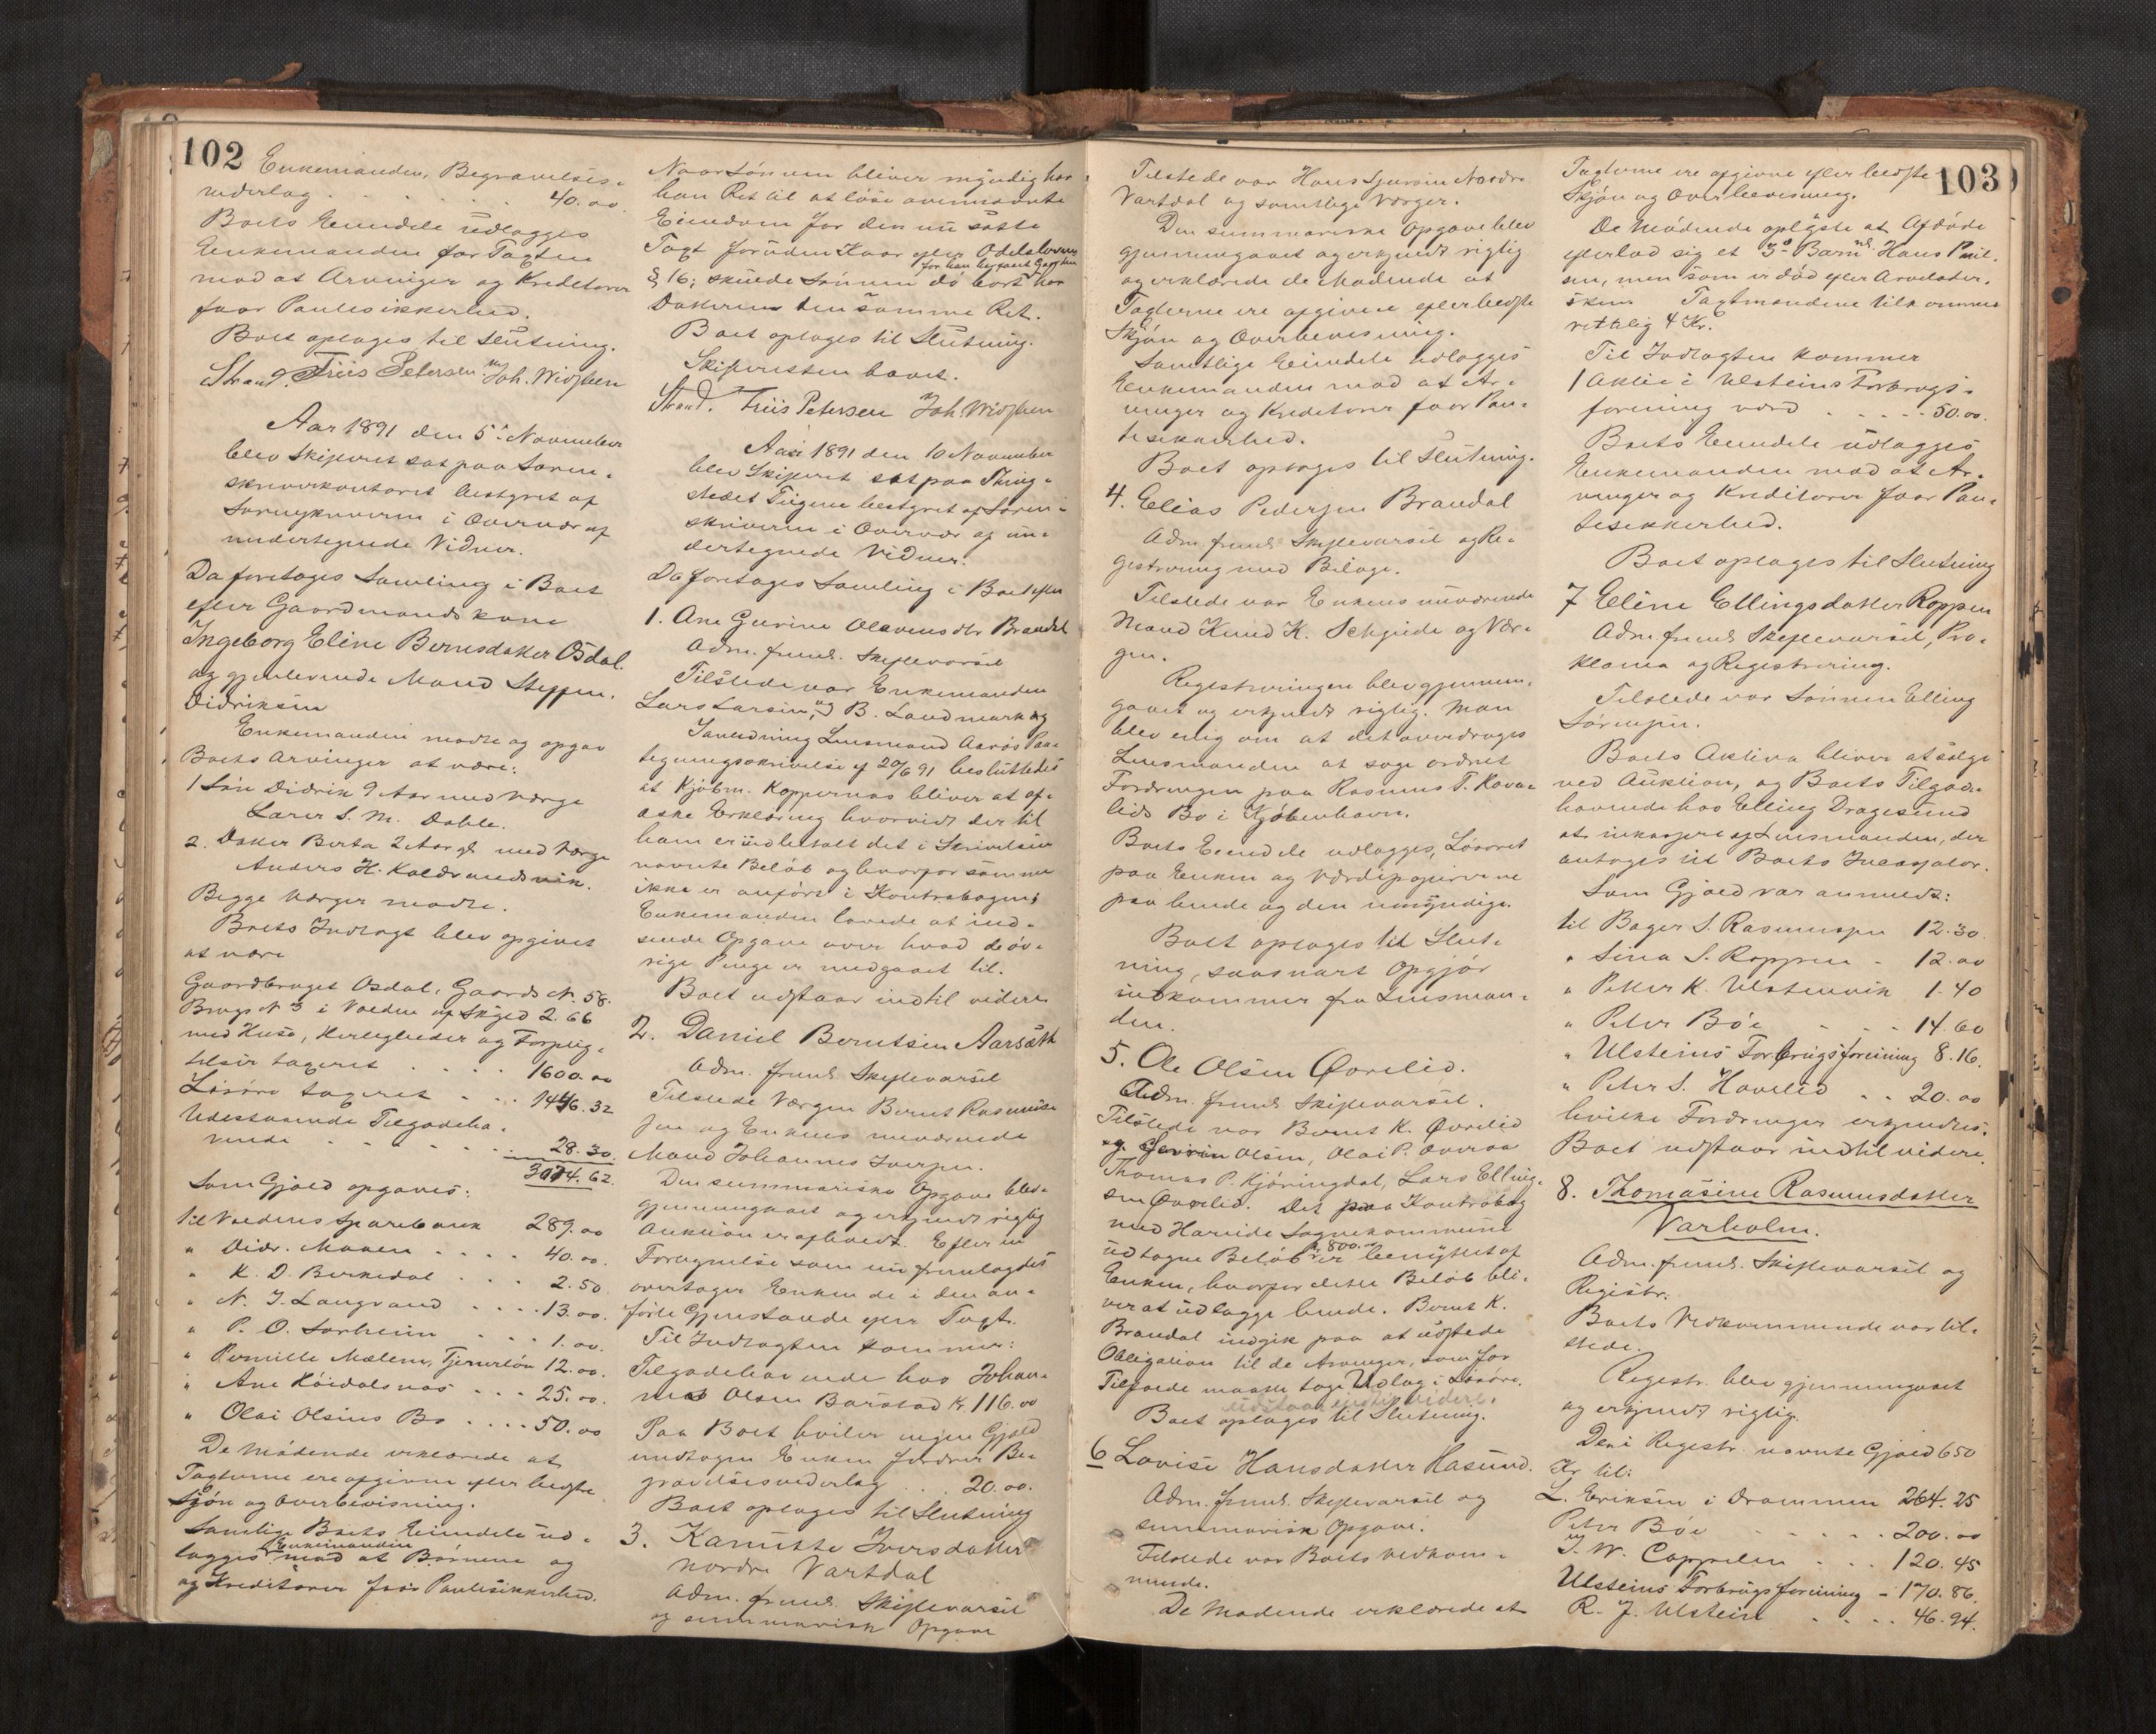 102
Enkemanden, Begravelses-
vederlag . . . . . . 40.00
Boets Eiendele udlægges
Enkemanden for Taxten
mod at Arvinger og Kreditorer
faar Pantesikkerhed.
Boet optages til Slutning.
Strand. Friis Petersen Joh. Widsteen
Aar 1891 den 5te November
blev Skifteret sat paa Soren-
skriverkontoret bestyret af
Sorenskriveren i Overvær af
undertegnede Vidner.
Da foretoges Samling i Boet
efter Gaardmandskone
Ingeborg Eline Berntsdatter Osdal
og gjenlevende Mand Steffen
Didriksen
Enkemanden mødte og opgav
Boets Arvinger at være:
1 Søn Didrik 9 Aar med Værge
Lærer S. M. Dahle.
2. Datter Berta 2 Aar gl. med Værge
Anders H. Kaldsundsvik.
Begge Værger mødte.
Boets Indtægt blev opgivet
at være
Gaardbruget Osdal, Gaards No. 58.
Brugs No 3 i Volden af Skyld 2.66
med Huse, Herligheder og Forplig-
telser taxeret . . . . 1600.00
Løsøre taxeret . . . 1446.32
Udestaaende Tilgodeha-
vende . . . . . 28.30
3074.62
Som Gjæld opgaves:
til Voldens Sparebank 289.00
" Didr. Maaen . . . . 40.00
" K. D. Birkedal . . . 2.50
" N. J. Langvand . . . . 13.00
" P. O. Sorheim . . . 1.00
" Pernille Mælem, Tjenerløn 12.00
" Ane Høidalsnæs . . . 25.00
" Olai Olsens Bo . . . . 50.00
De Mødende erklærede at
Taxterne ere afgivne efter bedste
Skjøn og Overbevisning.
Samtlige Boets Eiendele ud-
lægges Enkemanden mod at Børnene og
og Kreditorer faar Pantesikkerhed.
Naar Sønnen bliver myndig har
han Ret til at løse ovennævnte
Eiendom for den nu satte
Taxt foruden Kaar efter Odelslovens
§ 16; skulde Sønnen dø bort før han har faaet Gaarden har
Datteren den samme Ret.
Boet optages til Slutning.
Skifteretten hævet.
Strand. Friis Petersen Joh. Widsteen
Aar 1891 den 10 November
blev Skifteret sat paa Thing-
stedet Tugene bestyret af Soren-
skriveren i Overvær af un-
dertegnede Vidner.
Da foretoges Samling i Boet efter
1. Ane Gurine Olavensdtr Brandal
Adm. freml. Skiftevarsel
Tilstede var Enkemanden
Lars Larsen, og B. Landmark og
I Anledning Lensmand Aarøs Paa-
tegningsskrivelse af 20/6 91 besluttedes
at Kjøbm. Koppernæs bliver at af-
æske Erklæring hvorvidt der til
ham er udbetalt det i Skrivelsen
nævnte Beløb og hvorfor samme
ikke er anført i Kontrabogen;
Enkemanden lovede at ind-
sende Opgave over hvad de øv-
rige Penge er medgaaet til.
Boet udstaar indtil videre
2. Daniel Berntsen Aarsæth
Adm. freml. Skiftevarsel
Tilstede Værgen Bernt Rasmus-
sen og Enkens nuværende
Mand Johannes Iversen.
Den summariske Opgave blev
gjennemgaaet og erkjendt rigtig
Auktion er afholdt. Efter en
Fortegnelse som nu fremlagdes
overtager Enken de i den an-
førte Gjenstande efter Taxt.
Til Indtægten kommer:
Tilgodehavende hos Johan-
nes Olsen Barstad Kr. 116.00
Paa Boet hviler ingen Gjæld
undtagen Enken fordrer Be-
gravelsesvederlag . . . 20.00.
Boet optages til Slutning
3. Kanutte Iversdatter
nordre Vartdal
Adm. freml. Skiftevarsel
og summarisk Opgave
103
Tilstede var Hans Sjursen Nordre
Vartdal og samtlige Værger.
Den summariske Opgave blev
gjennemgaaet og erkjendt rigtig
og erklærede de Mødende at
Taxterne ere afgivne efter bedste
Skjøn og Overbevisning.
Samtlige Eiendele udlægges
Enkemanden mod at Ar-
vinger og Kreditorer faar Pan-
tesikkerhed.
Boet optages til Slutning.
4. Elias Pedersen Brandal
Adm. freml. Skiftevarsel og Re-
gistrering med Bilage.
Tilstede var Enkens nuværende
Mand Knud K. Schjeide og Vær-
gen.
Registreringen blev gjennem-
gaaet og erkjendt rigtig. Man
blev enig om at det overdrages
Lensmanden at søge ordnet
Fordringen paa Rasmus T. Hova-
lids Bo i Kjøbenhavn.
Boets Eiendele udlægges, Løsøret
paa Enken og Værdipapirerne
paa hende og den umyndige.
Boet optages til Slut-
ning, saasnart Opgjør
indkommer fra Lensman-
den.
5. Ole Olsen Øvrelid.
Adm. freml. Skiftevarsel.
Tilstede var Bernt K. Øvrelid
og Severin Olsen, Olai P. Overaa
Thomas P. Kjøringdal, Lars Elling-
sen Øvrelid. Det paa Kontrabog
med Hareide Sognekommune
udtagne Beløb kr. 800.00 er benyttet af
Enken, hvorfor dette Beløb bli-
ver at udlægge hende. Bernt K.
Brandal indgik paa at udstede
Obligation til de Arvinger, som for
Tilfælde maatte tage Udlæg i Løsøre.
udstaar indtil videre.
Boet optages til Slutning.
6 Lovise Hansdatter Hasund.
Adm. freml. Skiftevarsel og
summarisk Opgave.
Tilstede var Boets Vedkom-
mende.
De Mødende erklærede at
Taxterne ere afgivne efter bedste
Skjøn og Overbevisning.
De Mødende oplyste at Afdøde
efterlod sig et 3die Barn ndl. Hans Paul-
sen, men som er død efter Arvelader-
sken. Taxtmændene tilkommer
rettelig 4 Kr.
Til Indtægten kommer
1 Aktie i Ulsteins Forbrugs-
forening værd . . . . . 50.00.
Boets Eiendele udlægges
Enkemanden mod at Ar-
vinger og Kreditorer faar Pan-
tesikkerhed.
Boet optages til Slutning
7 Eline Ellingsdatter Roppen
Adm. freml. Skiftevarsel, Pro-
klama og Registrering.
Tilstede var Sønnen Elling
Sørensen.
Boets Aktiva bliver at sælge
ved Auktion, og Boets Tilgode-
havende hos Elling Dragesund
at inkassere af Lensmanden, der
antages til Boets Incassator.
Som Gjæld var anmeldt:
til Bager S. Rasmussen 12.30.
" Sina S. Roppen - 12.00
" Petter K. Ulstenvik 1.40
" Peter Bøe - - - 14.60
" Ulsteins Forbrugsforening 8.16.
" Peter S. Hovelid . . 20.00
hvilke Fordringer erkjendtes.
Boet udstaar indtil videre.
8. Thomasine Rasmusdatter
Varholm.
Adm. freml. Skiftevarsel og
Registr.
Boets Vedkommende var til-
stede.
Registr. blev gjennemgaaet
og erkjendt rigtig.
Den i Registr. nævnte Gjæld 650
Kr. til:
L. Eriksen i Drammen 264.25
Peter Bøe . . . . . 200.00
J. W. Cappelen . . . 120.45
Ulsteins Forbrugsforening - 170.86.
R. J. Ulstein . . . . 46.94.